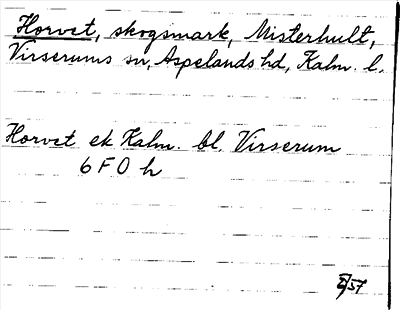 Horvet, skogsmark, Misterhult,
Virserums sn, Aspelands hd, Kalm. l.
Horvet ek Kalm. bl. Virserum
6 F 0 h